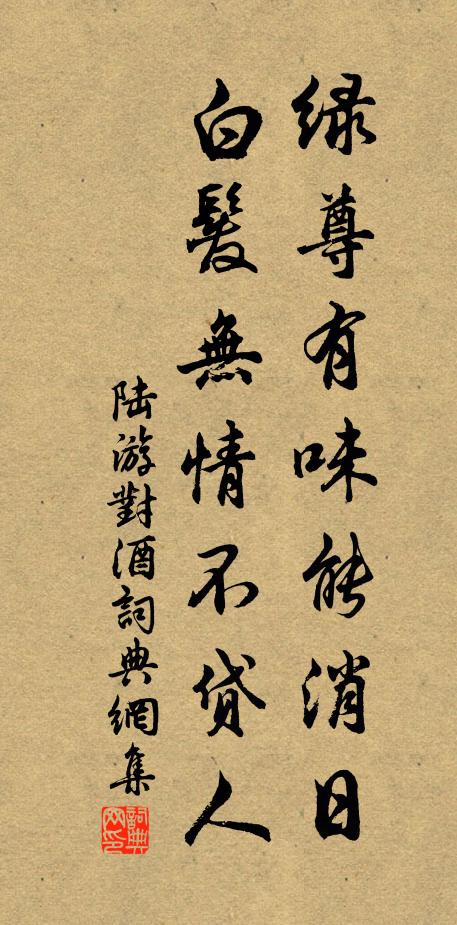 绿尊有味能消日
白髮無情不贷人
陆游對酒詞典網集
詞典网印